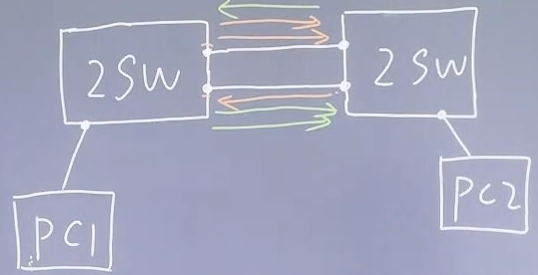 2SW
2SW
PC1
PC2